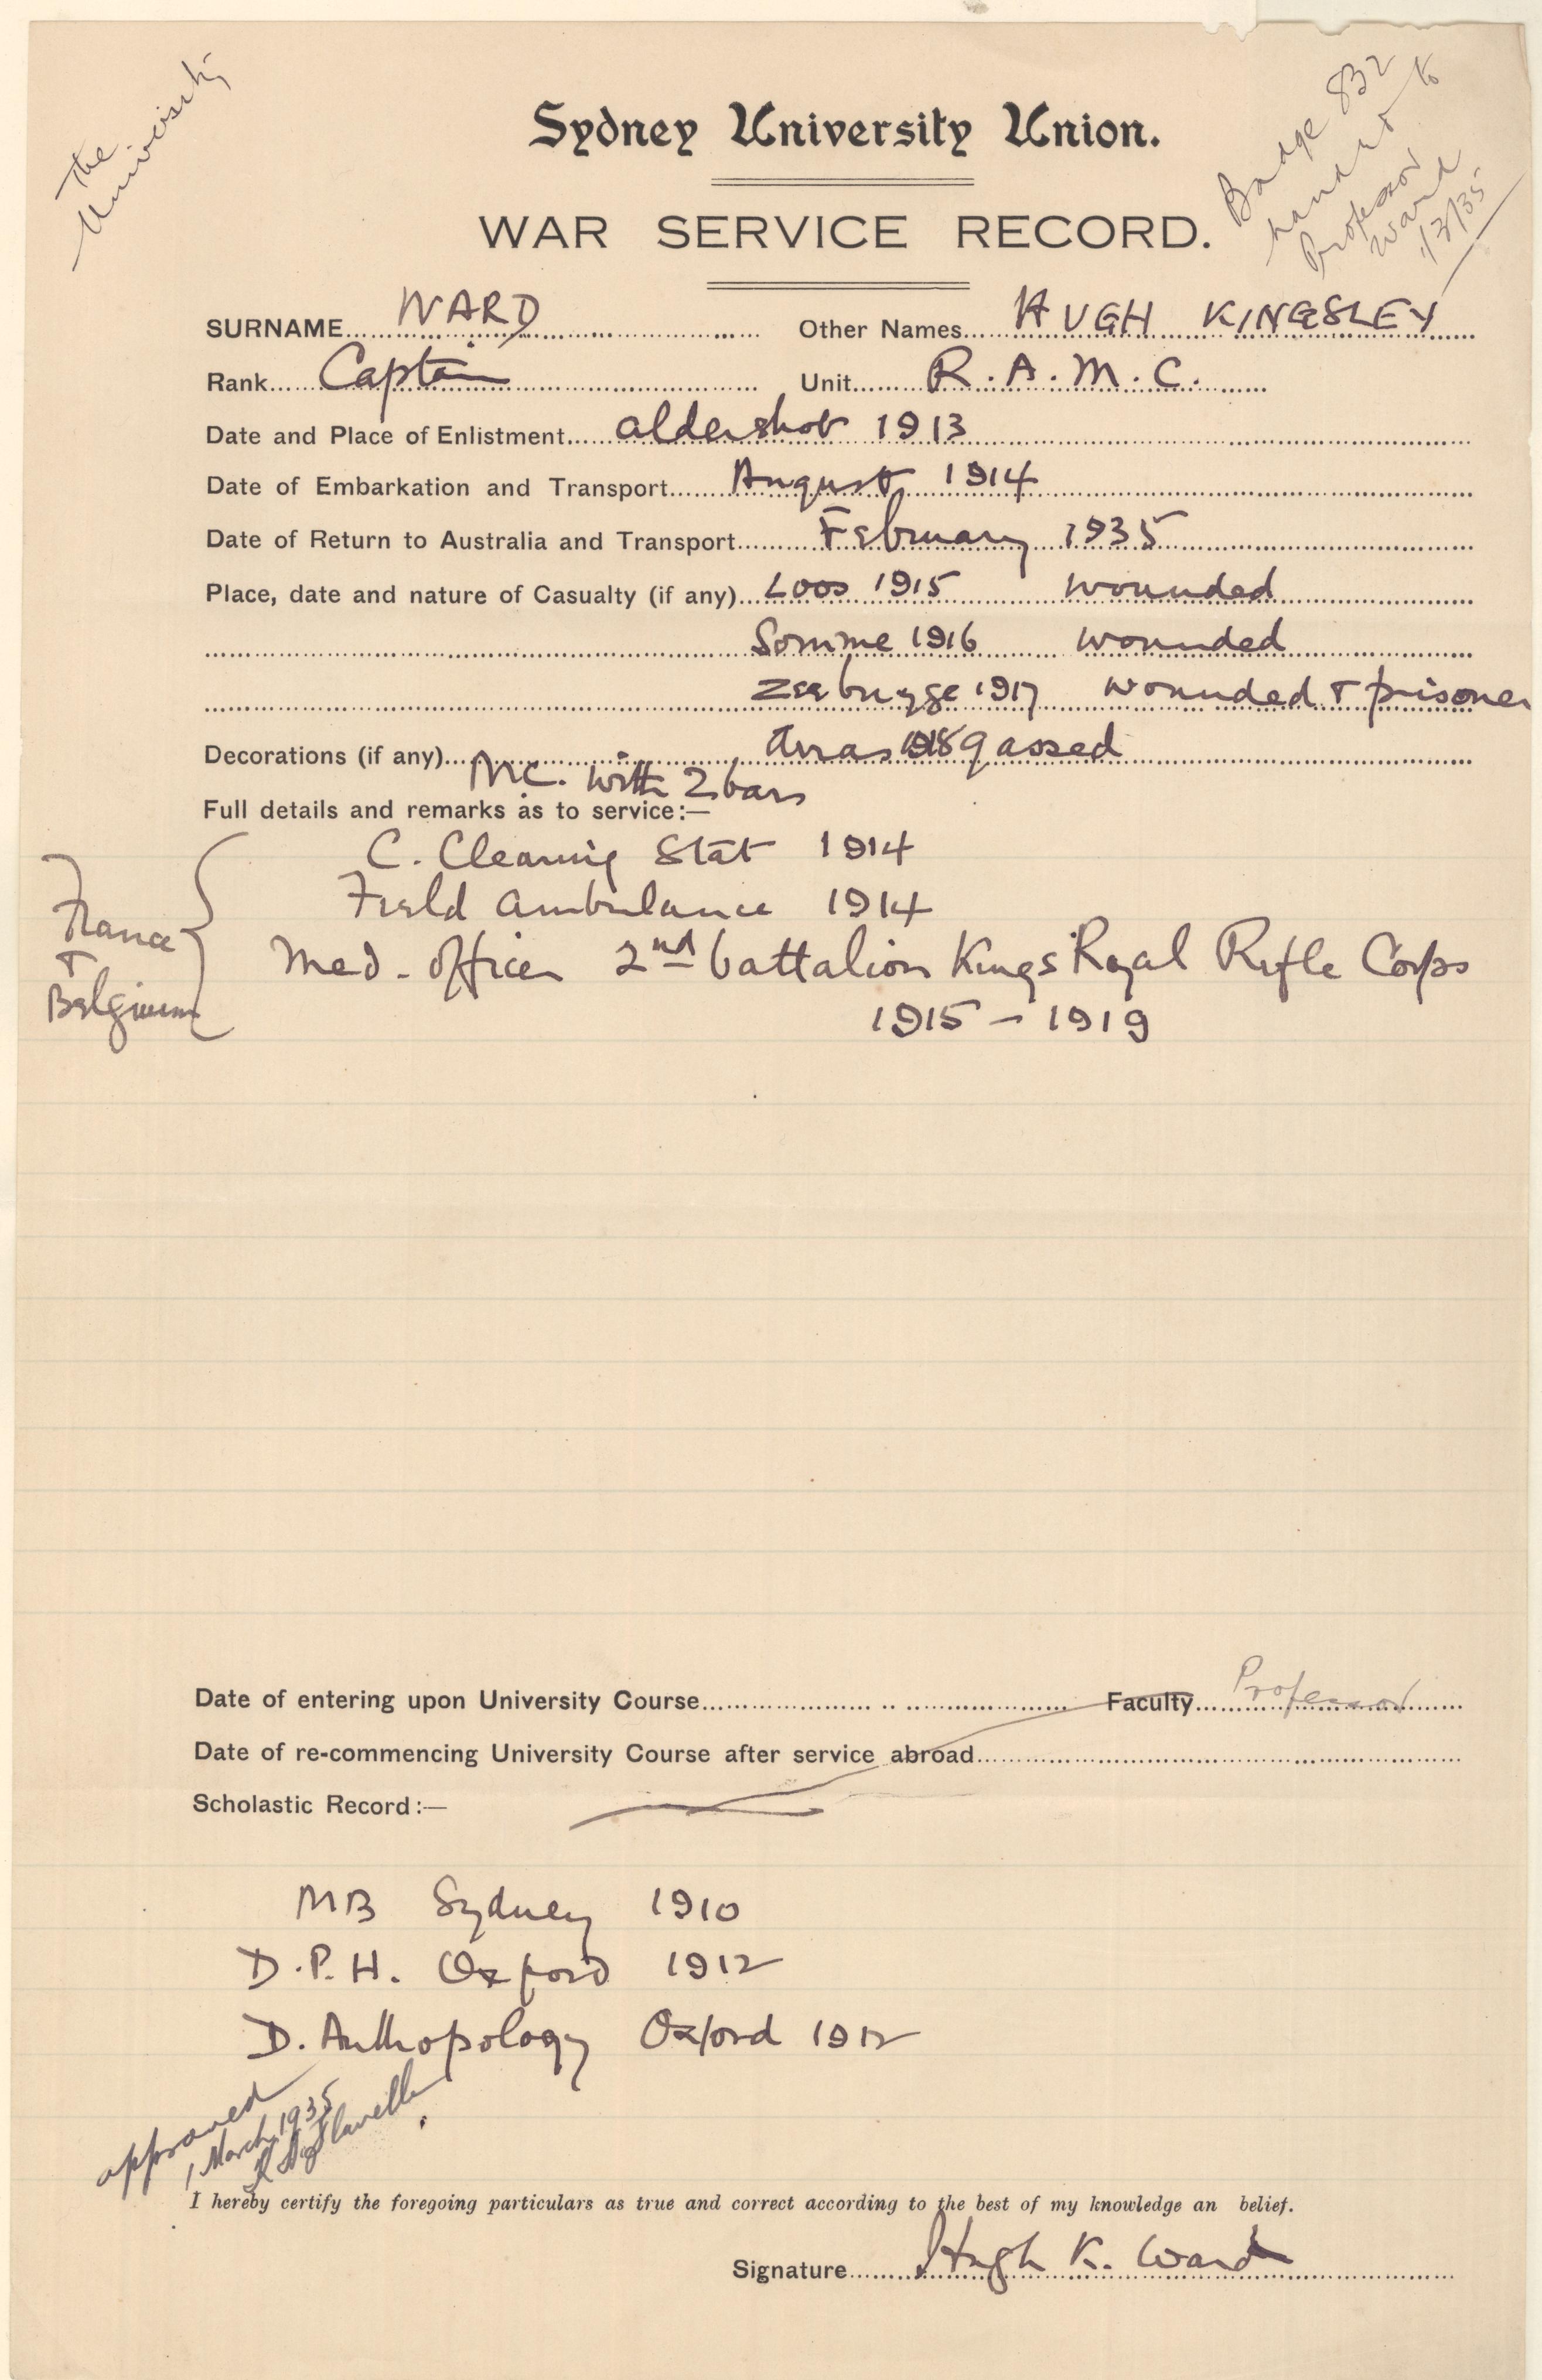 The
University
Badge 832
handed to
Professor
Ward
1/3/35
Sydney University Union.
WAR SERVICE RECORD.
SURNAME WARD Other Names HUGH KINGSLEY
Rank Captain Unit R.A.M.C.
Date and Place of Enlistment aldershot 1913
Date of Embarkation and Transport August 1914
Date of Return to Australia and Transport February 1935
Place, date and nature of Casualty (if any) Loos 1915 wounded
Somme 1916 wounded
Zeebrugge 1917 wounded & prisoner
Arras 1918 gassed
Decorations (if any) M.C. with 2 bars
Full details and remarks as to service:—
C. Clearing Stat 1914
Field Ambulance 1914
France
&
Belgium
Med. Officer 2nd battalion Kings Royal Rifle Corps
1915 - 1919
Date of entering upon University Course Faculty Professor
Date of re-commencing University Course after service abroad
Scholastic Record:—
MB Sydney 1910
D.P.H. Oxford 1912
D. Anthopology Oxford 1912
approved
1 March 1935
I hereby certify the foregoing particulars as true and correct according to the best of my knowledge an belief.
Signature Hugh K. Ward